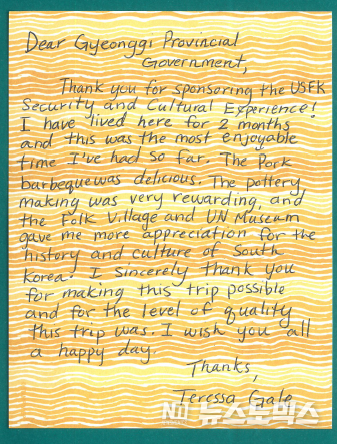 Dear Gyeonggi Provincial
Government,
Thank you for sponsoring the USFK
Security and Cultural Experience!
I have lived here for 2 months
and this was the most enjoyable
time I've had so far. The Pork
barbeque was delicious. The pottery
making was very rewarding, and
the Folk Village and UN Museum
gave me more appreciation for the
history and culture of South
Korea! I Sincerely thank you
for making this trip possible
and for the level of quality
this trip was. I wish you all
a happy day.
Thanks,
Teressa Gale
뉴스노믹스